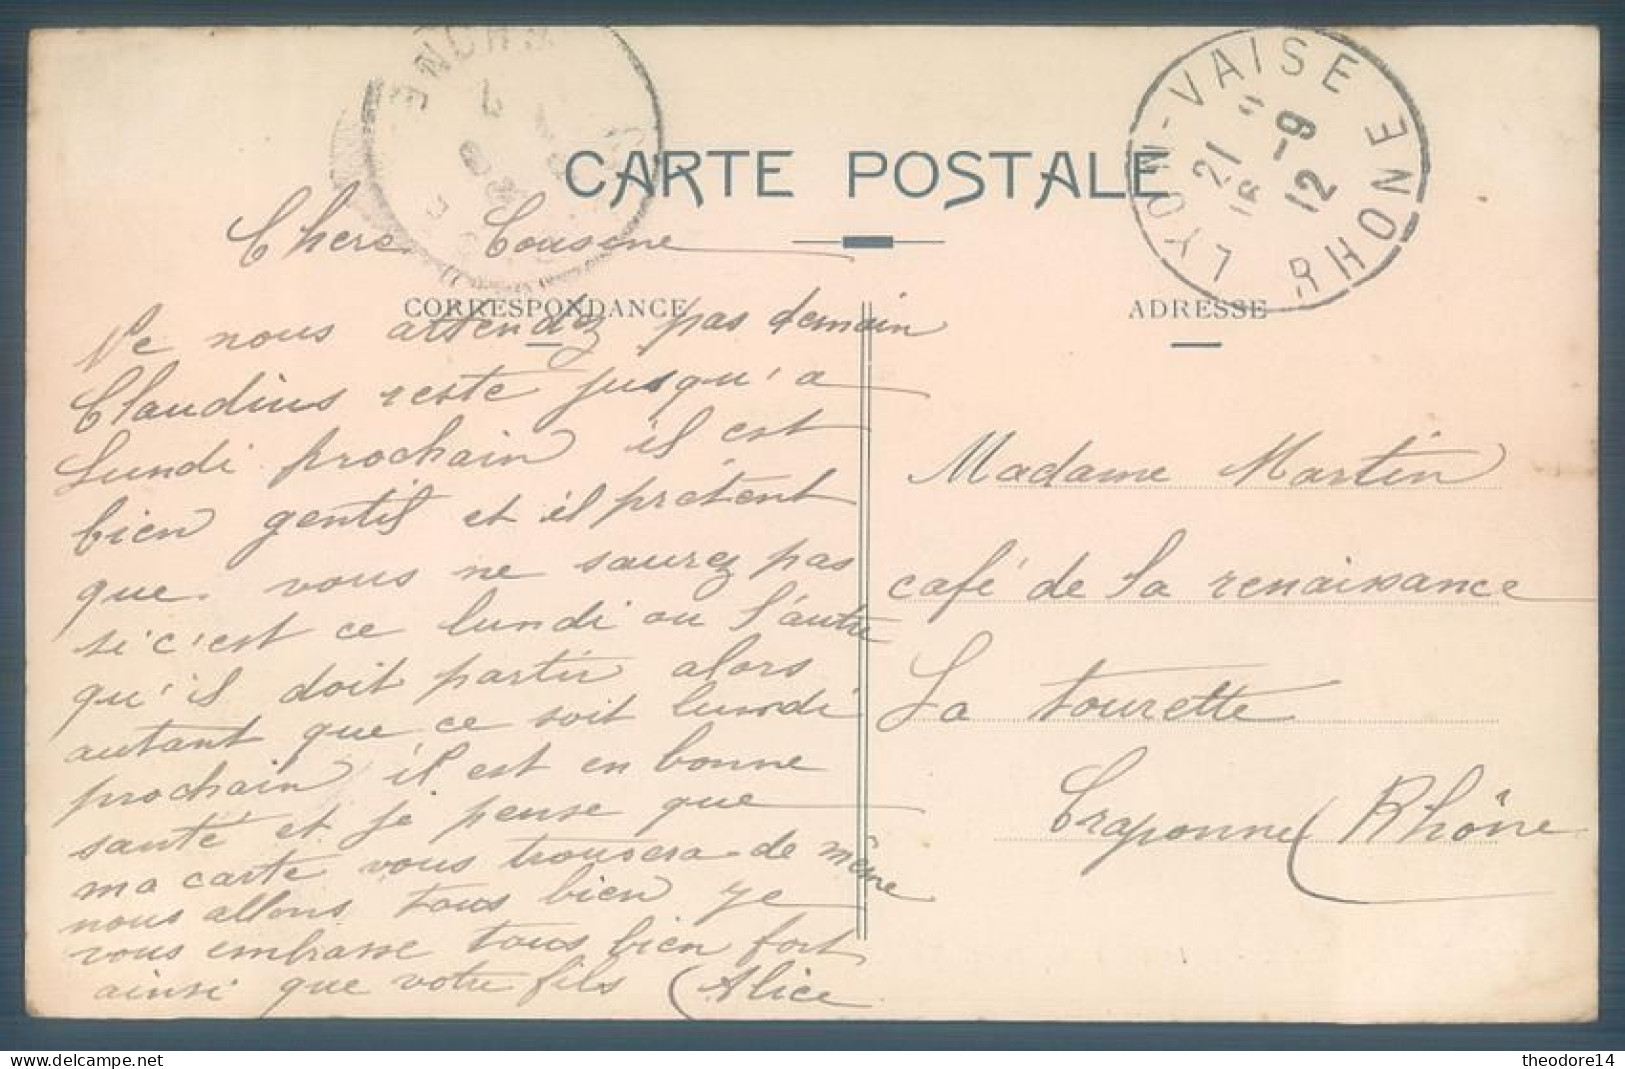 CARTE POSTALE
LYON-VAISE
RHONE
21
12-9
12
CORRESPONDANCE
Chere Cousine
Ne nous attendez pas demain
Claudius reste jusqu'a
Lundi prochain il est
bien gentil et il prétent
que vous ne saurez pas
si c'est ce lundi ou l'autre
qu'il doit partir alors
autant que ce soit lundi
prochain il est en bonne
santé et je pense que
ma carte vous trousera de même
nous allons tous bien je
vous embrasse tous bien fort
ainsi que votre fils (Alice
ADRESSE
Madame Martin
café de la renaissance
La tourette
Craponne (Rhône
theodore14